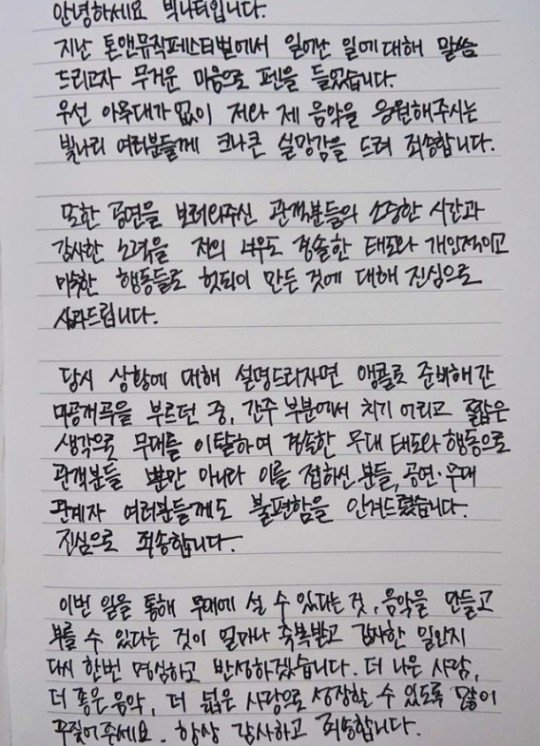 안녕하세요 빛나리입니다.
지난 톤앤뮤직페스티벌에서 일어난 일에 대해 말씀
드리고자 무거운 마음으로 펜을 들었습니다.
우선 아무대가 없이 저와 제 음악을 응원해주시는
빛나리 여러분들께 크나큰 실망감을 드려 죄송합니다.
또한 공연을 보러와주신 관객분들의 소중한 시간과
감사한 노력을 저의 너무도 경솔한 태도와 개인적이고
미숙한 행동들로 헛되이 만든 것에 대해 진심으로
사과드립니다.
당시 상황에 대해 설명드리자면 앵콜로 준비해간
미공개곡을 부르던 중, 간주 부분에서 치기 어리고 짧은
생각으로 무대를 이탈하여 경솔한 무대 태도와 행동으로
관객분들 뿐만 아니라 이를 접하신 분들, 공연·무대
관계자 여러분들께도 불편함을 안겨드렸습니다.
진심으로 죄송합니다.
이번 일을 통해 무대에 설 수 있다는 것, 음악을 만들고
부를 수 있다는 것이 얼마나 축복받고 감사한 일인지
다시 한번 명심하고 반성하겠습니다. 더 나은 사람,
더 좋은 음악, 더 넓은 사랑으로 성장할 수 있도록 많이
꾸짖어주세요. 항상 감사하고 죄송합니다.